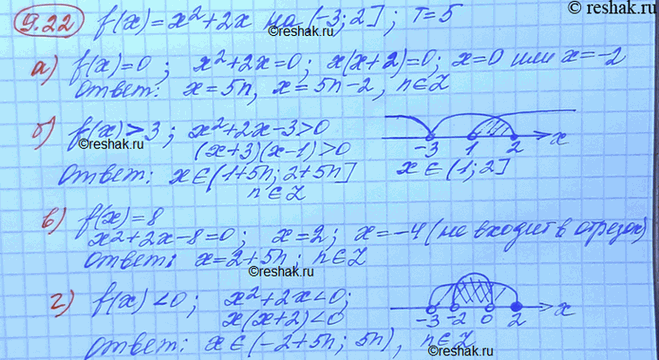 ©reshak.ru
9.22 f(x)=x²+2x на (-3;2]; T=5
а) f(x)=0; x²+2x=0; x(x+2)=0; x=0 или x=-2
©reshak.ru
Ответ: x=5n, x=5n-2, n∈Z
б) f(x)>3; x²+2x-3>0
©reshak.ru
(x+3)(x-1)>0
-3 1 2 x
Ответ: x∈(1+5n; 2+5n]
n∈Z
x∈(1;2]
в) f(x)=8
x²+2x-8=0; x=2; x=-4 (не входит в отрезок)
Ответ: x=2+5n; n∈Z
©reshak.ru
г) f(x)<0; x²+2x<0;
x(x+2)<0
-3 -2 0 2 x
Ответ: x∈(-2+5n; 5n), n∈Z
©reshak.ru